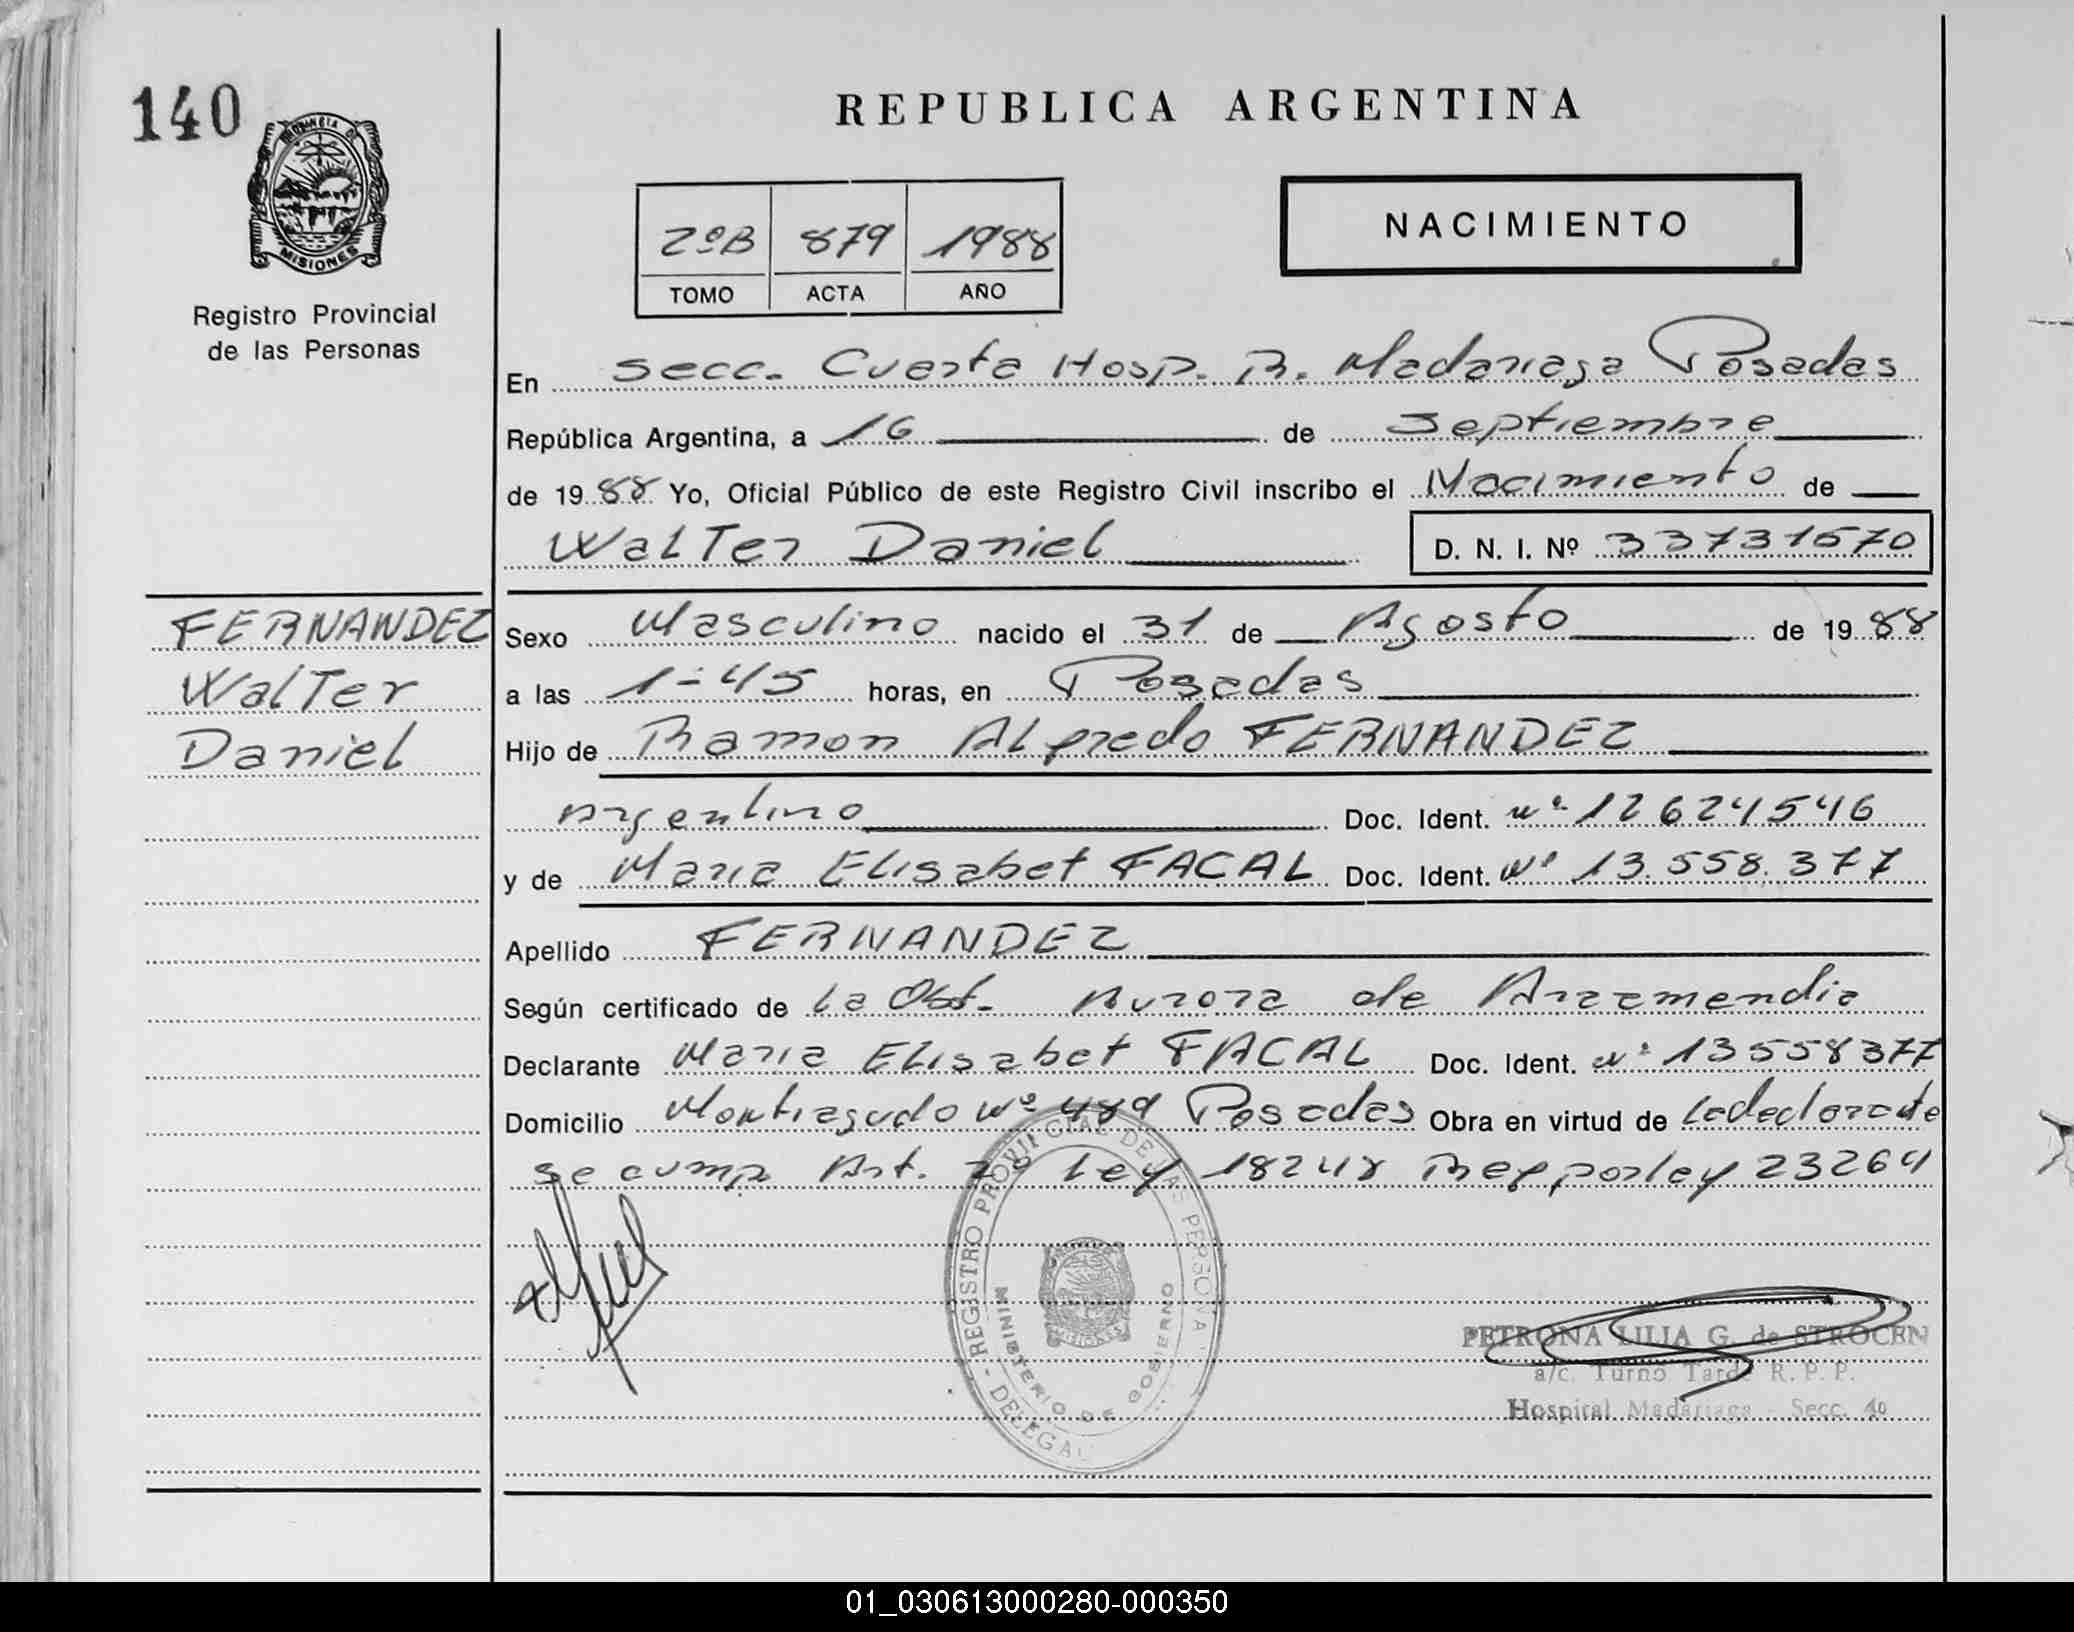 140
PROVINCIA DE
MISIONES
Registro Provincial
de las Personas
REPUBLICA ARGENTINA
2ºB 879 1988
TOMO ACTA AÑO
NACIMIENTO
En Secc. Cuarta Hosp. R. Madariaga Posadas
República Argentina, a 16 de Septiembre
de 1988 Yo, Oficial Público de este Registro Civil inscribo el Nacimiento de
Walter Daniel D. N. I. Nº 33731670
FERNANDEZ
Walter
Daniel
Sexo Masculino nacido el 31 de Agosto de 1988
a las 1-45 horas, en Posadas
Hijo de Ramon Alfredo FERNANDEZ
Argentino Doc. Ident. nº 12624546
y de Maria Elisabet FACAL Doc. Ident. Nº 13.558.377
Apellido FERNANDEZ
Según certificado de la Obst. Aurora de Arramendia
Declarante Maria Elisabet FACAL Doc. Ident. nº 13558377
Domicilio Monteagudo nº 489 Posadas Obra en virtud de la declarante
se cump Art. 2º Ley 18248 Ref por ley 23264
REGISTRO PROVINCIAL DE LAS PERSONAS
MINISTERIO DE GOBIERNO
MISIONES
PETRONA LILIA G. de STROCEN
a/c. Turno Tarde R. P. P.
Hospital Madariaga - Secc. 4º
01_030613000280-000350